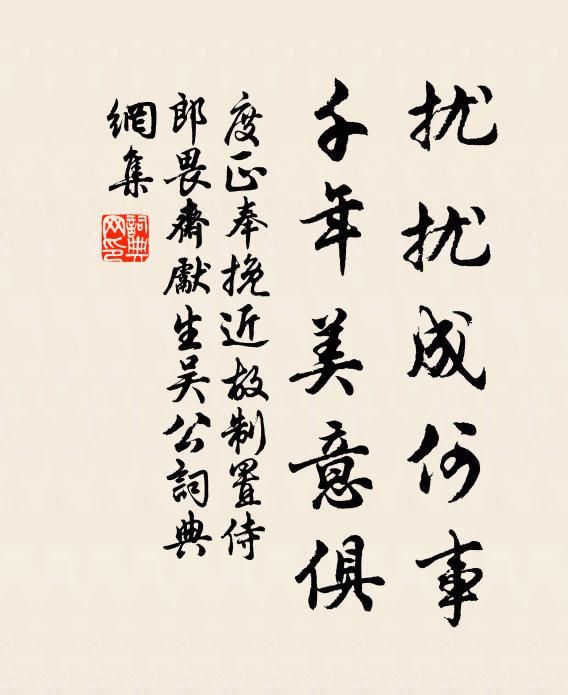 扰扰成何事
千年美意俱
度正奉挽近故制置侍
郎畏斋獻生吴公詞典
網集
詞典網印